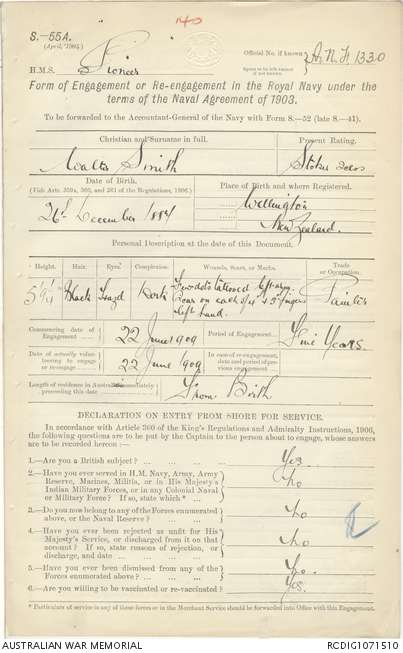 140
S.—55A.
(April, 1908.)
Official No. if known A.N.F. 1330
H.M.S. Pioneer
Form of Engagement or Re-engagement in the Royal Navy under the
terms of the Naval Agreement of 1903.
To be forwarded to the Accountant-General of the Navy with Form S.—52 (late S.—41).
Christian and Surname in full. Present Rating.
Walter Smith Stoker 2 class
Date of Birth.
(Vide Arts. 359a, 360, and 361 of the Regulations, 1906.)
Place of Birth and where Registered.
26th December 1884 Wellington
New Zealand.
Personal Description at the date of this Document.
Height. Hair. Eyes. Complexion. Wounds, Scars, or Marks. Trade
or Occupation.
Black Hazel Dark
Two dots tattooed left arm
Scar on each of 1 & 3 fingers
left hand.
Painter
Commencing date of
Engagement 22 June 1909 Period of Engagement Five Years.
Date of actually volun-
teering to engage
or re-engage 22 June 1909
In case of re-engagement,
date and period of pre-
vious engagement
Length of residence in Australia immediately
preceding this date From Birth
DECLARATION ON ENTRY FROM SHORE FOR SERVICE.
In accordance with Article 360 of the King's Regulations and Admiralty Instructions, 1906,
the following questions are to be put by the Captain to the person about to engage, whose answers
are to be recorded herein :—
1.—Are you a British subject? Yes
2.—Have you ever served in H.M. Navy, Army, Army
Reserve, Marines, Militia, or in His Majesty's
Indian Military Forces, or in any Colonial Naval
or Military Force? If so, state which * No
3.—Do you now belong to any of the Forces enumerated
above, or the Naval Reserve? No
4.—Have you ever been rejected as unfit for His
Majesty's Service, or discharged from it on that
account? If so, state reasons of rejection, or
discharge, and date No
5.—Have you ever been dismissed from any of the
Forces enumerated above? No
6.—Are you willing to be vaccinated or re-vaccinated? Yes.
* Particulars of service in any of these forces or in the Merchant Service should be forwarded into Office with this Engagement.
AUSTRALIAN WAR MEMORIAL RCDIG1071510